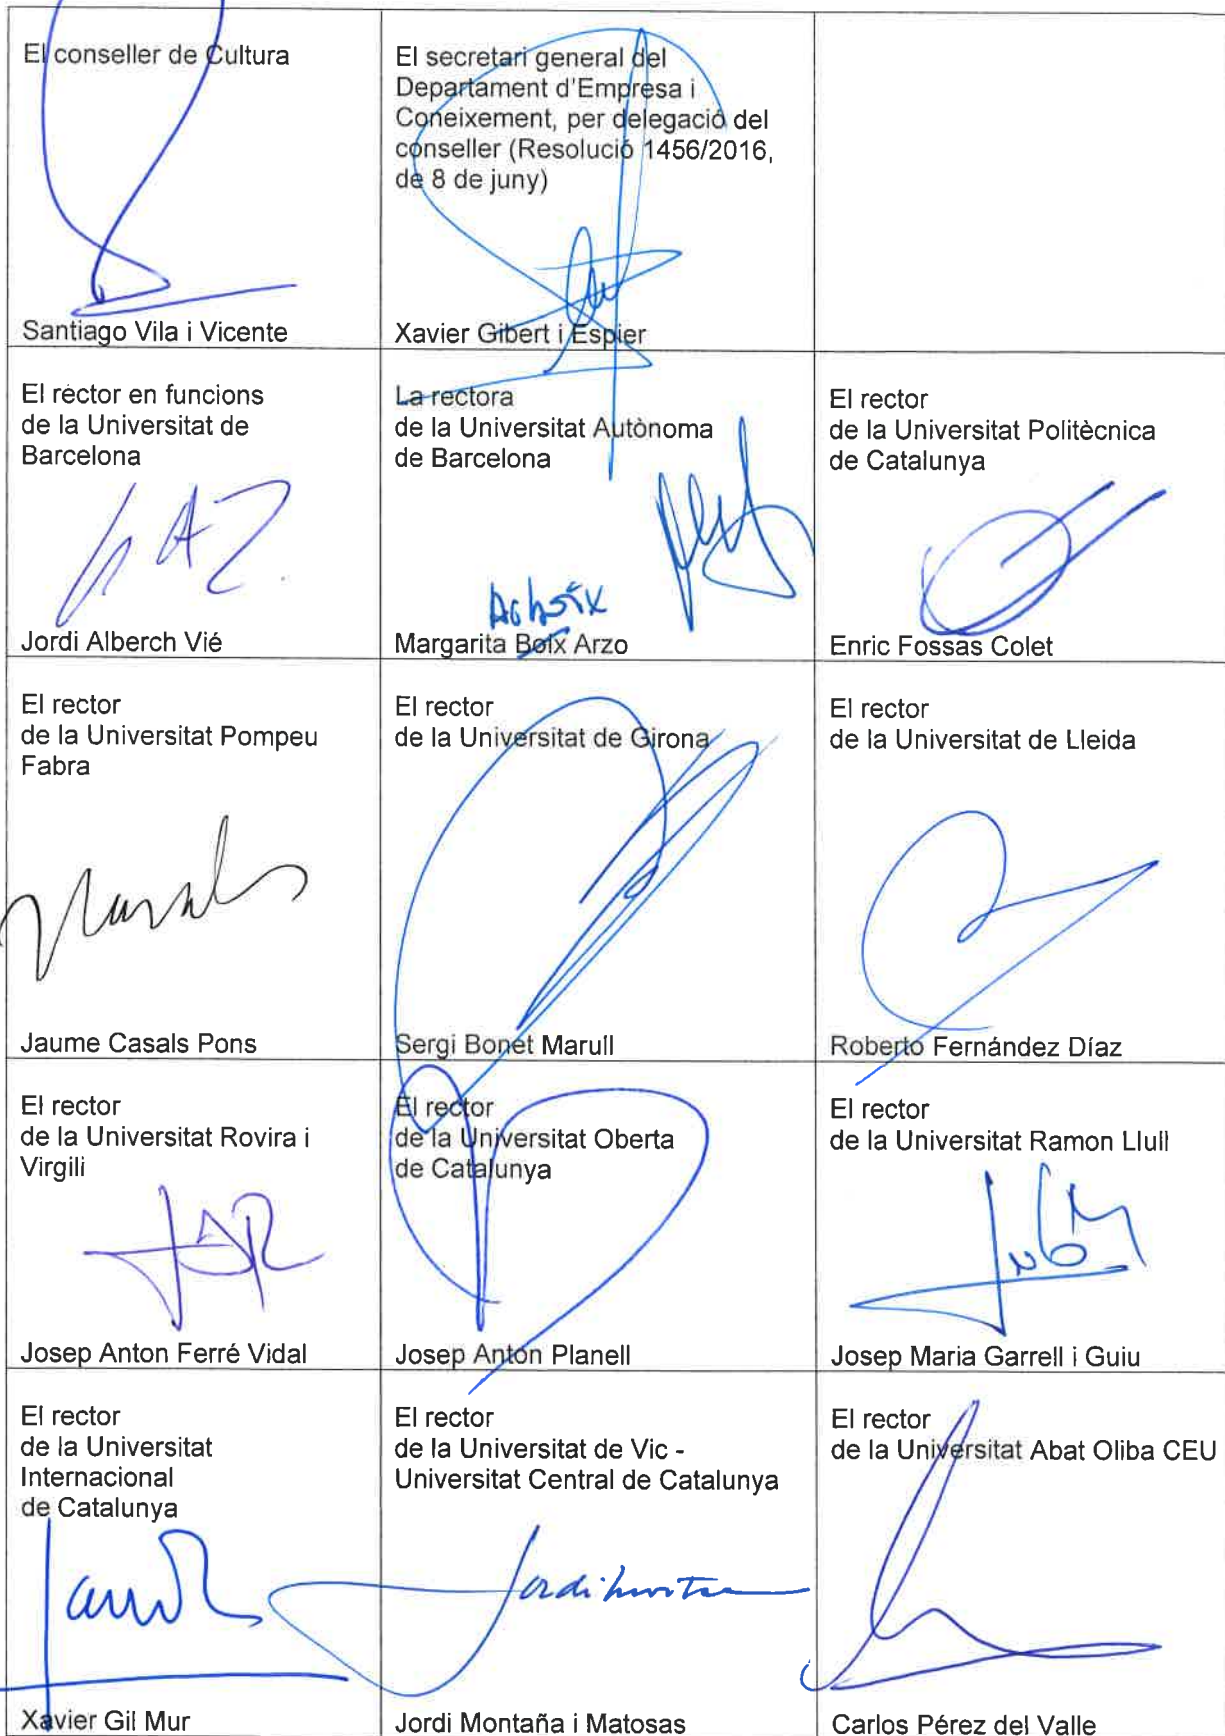 El conseller de Cultura
Santiago Vila i Vicente
El secretari general del
Departament d'Empresa i
Coneixement, per delegació del
conseller (Resolució 1456/2016,
de 8 de juny)
Xavier Gibert i Espier
El rector en funcions
de la Universitat de
Barcelona
Jordi Alberch Vié
La rectora
de la Universitat Autònoma
de Barcelona
Margarita Boix Arzo
El rector
de la Universitat Politècnica
de Catalunya
Enric Fossas Colet
El rector
de la Universitat Pompeu
Fabra
Jaume Casals Pons
El rector
de la Universitat de Girona
Sergi Bonet Marull
El rector
de la Universitat de Lleida
Roberto Fernández Díaz
El rector
de la Universitat Rovira i
Virgili
Josep Anton Ferré Vidal
El rector
de la Universitat Oberta
de Catalunya
Josep Anton Planell
El rector
de la Universitat Ramon Llull
Josep Maria Garrell i Guiu
El rector
de la Universitat
Internacional
de Catalunya
Xavier Gil Mur
El rector
de la Universitat de Vic -
Universitat Central de Catalunya
Jordi Montaña i Matosas
El rector
de la Universitat Abat Oliba CEU
Carlos Pérez del Valle